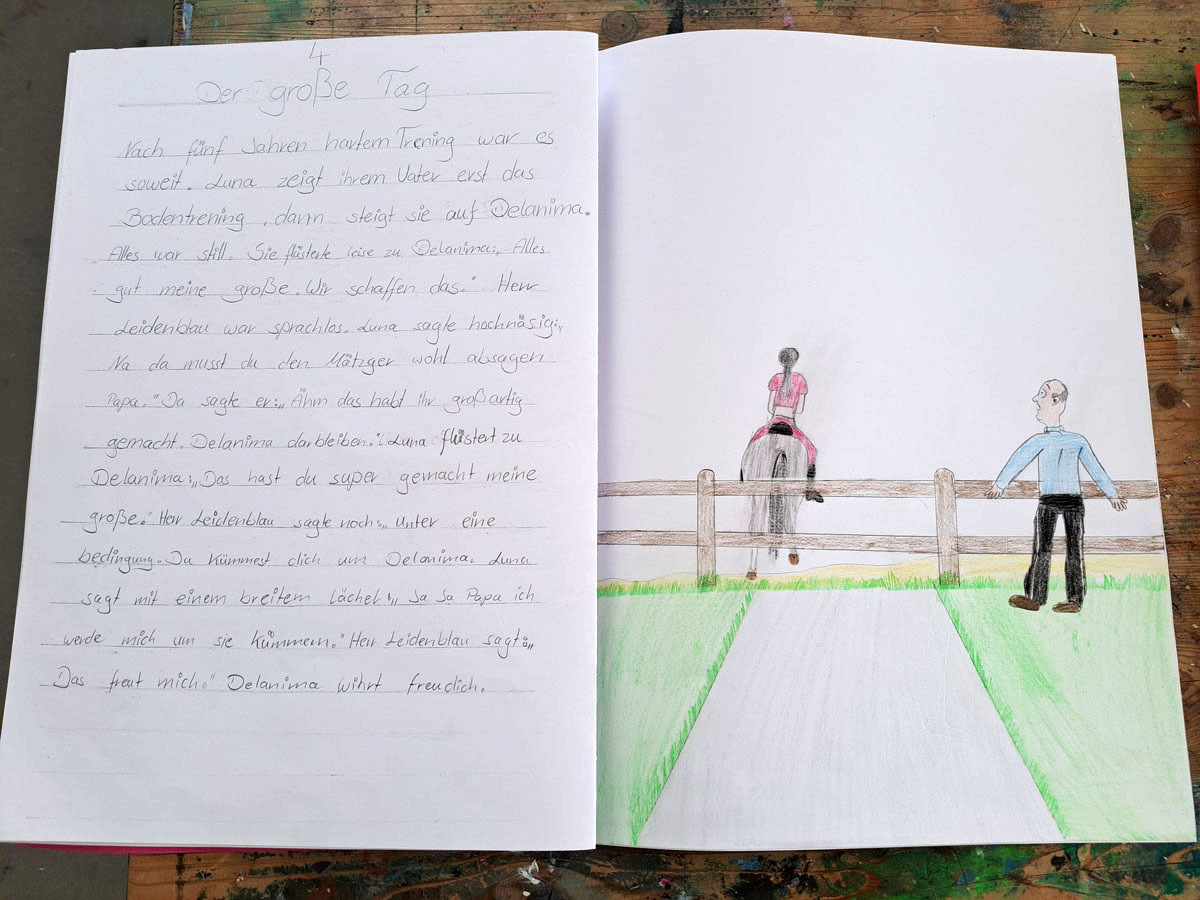 4
Der große Tag
Nach fünf Jahren hartem Trening war es
soweit. Luna zeigt ihrem Vater erst das
Bodentrening, dann steigt sie auf Delanima.
Alles war still. Sie flüsterte leise zu Delanima:„ Alles
gut meine große. Wir schaffen das." Herr
Leidenblau war sprachlos. Luna sagte hochnäsig:„
Na da musst du den Mätzger wohl absagen
Papa." Da sagte er:„ Ähm das habt ihr großartig
gemacht. Delanima darbleiben." Luna flüstert zu
Delanima:„ Das hast du super gemacht meine
große." Herr Leidenblau sagte noch:„ unter eine
bedingung. Du kümmest dich um Delanima. Luna
sagt mit einem breitem lächel:„ Ja Ja Papa ich
werde mich um sie kümmern." Herr Leidenblau sagt:„
Das freut mich." Delanima wihrt freudich.